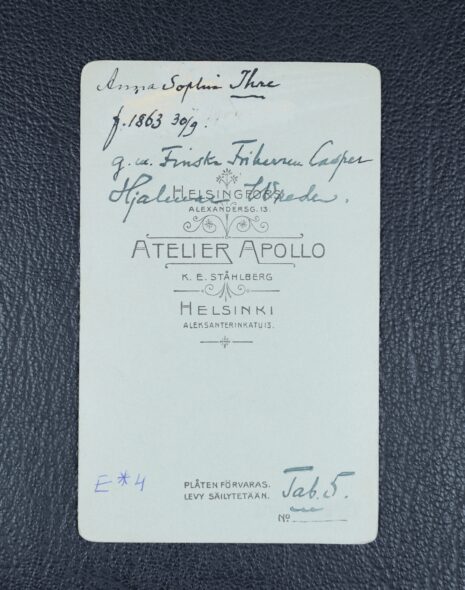 Anna Sophia Ihre
f. 1863 30/9.
g. m. Finske Friherren Casper
Hjalmar Wrede.
HELSINGFORS
ALEXANDERSG. 13.
ATELIER APOLLO
K. E. STÅHLBERG
HELSINKI
ALEKSANTERINKATU 13.
E*4
PLÅTEN FÖRVARAS.
LEVY SÄILYTETÄÄN.
Tab. 5.
No